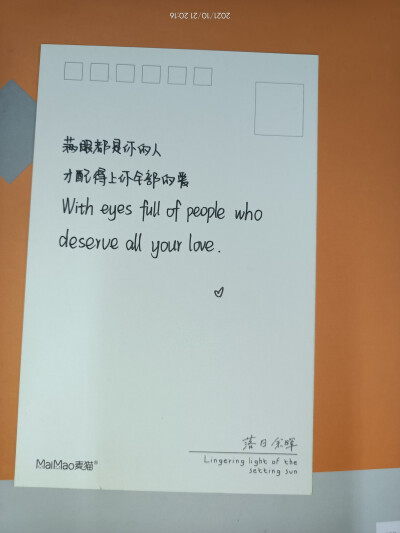 2021/10/21 20:16
满眼都是你的人
才配得上你全部的爱
With eyes full of people who
deserve all your love.
落日余晖
Lingering light of the
setting sun
MaiMao麦猫®